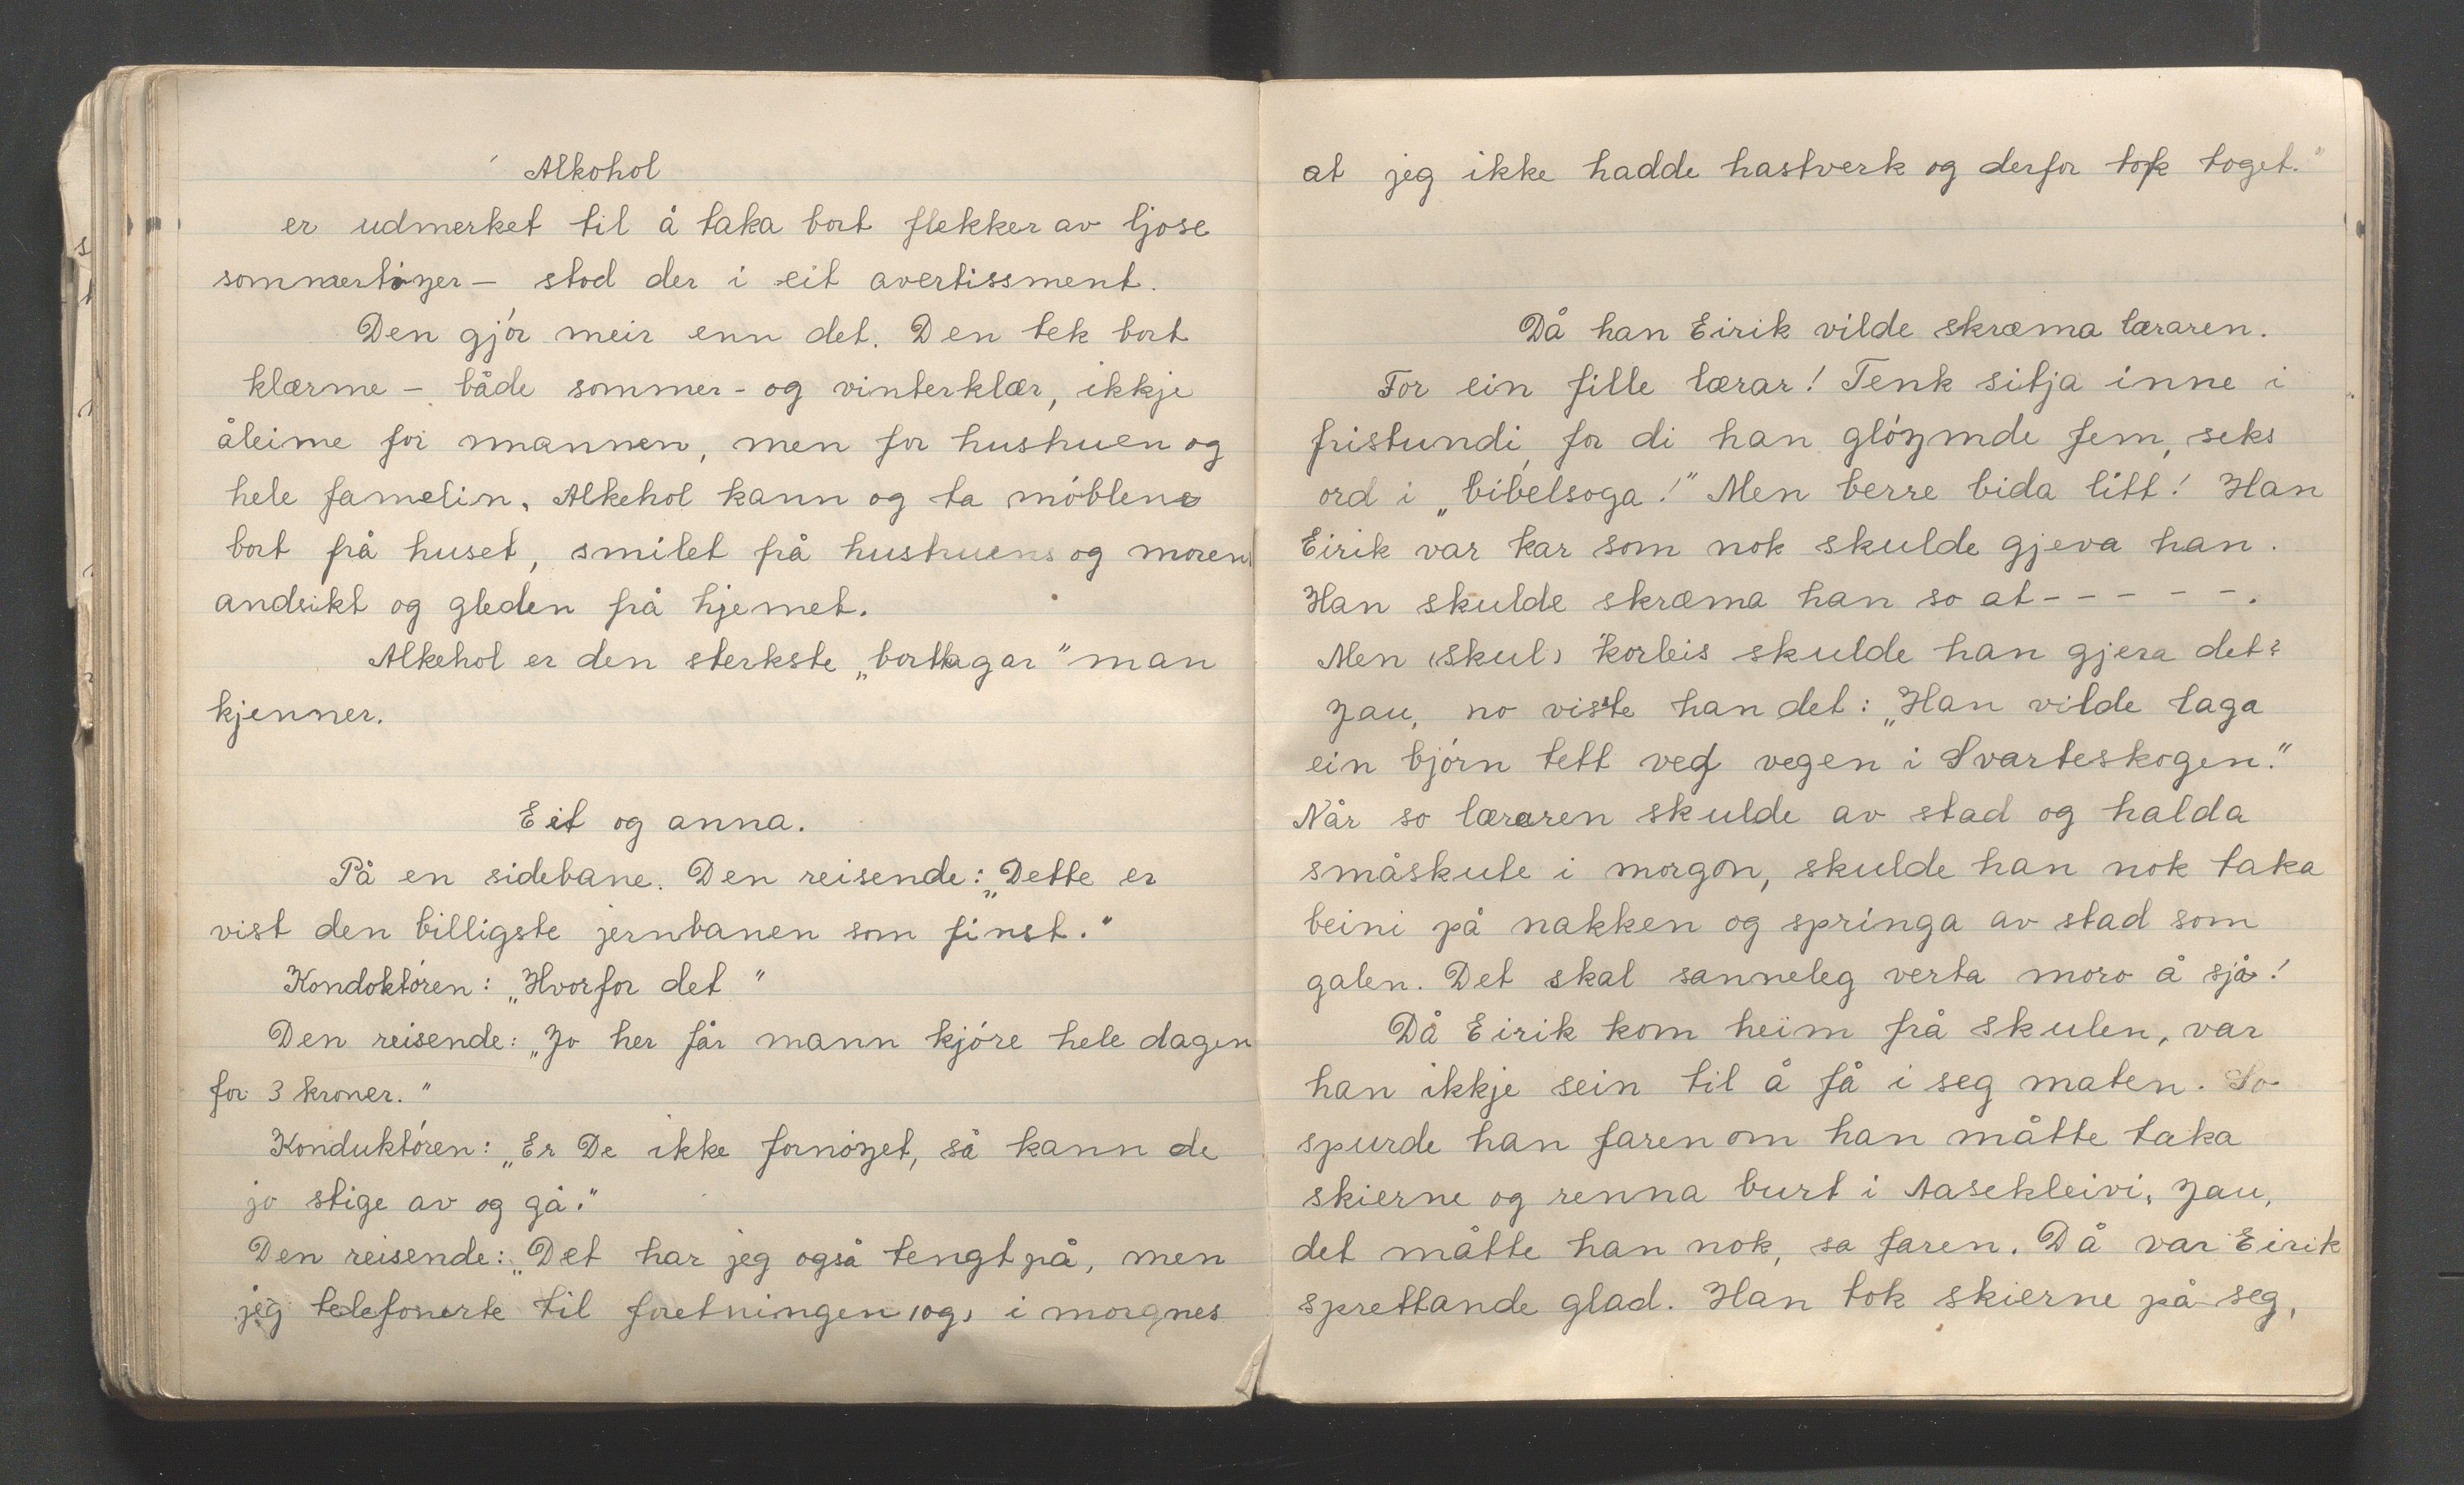 Alkohol
er udmerket til å taka bort flekker av ljose
sommertöyer – stod der i eit avertissment.
Den gjór meir enn det. Den tek bort
klærme – både sommer- og vinterklær, ikkje
åleime for mannen, men for hustruen og
hele famelin. Alkehol kann og ta móblene
bort frå huset, smilet frå hustruens og morens
andsikt og gleden frå hjemet.
Alkehol er den sterkste „borttagar" man
kjenner.
Eit og anna.
På en sidebane. Den reisende: „Dette er
vist den billigste jernbanen som finst."
Kondoktóren: „Hvorfor det"
Den reisende: „Jo her får mann kjóre hele dagen
for 3 kroner."
Konduktóren: „Er De ikke fornóyet, så kann de
jo stige av og gå."
Den reisende: „Det har jeg også tengt på, men
jeg telefonerte til foretningen (og) i morgnes
at jeg ikke hadde hastverk og derfor tok toget."
Då han Eirik vilde skræma læraren.
For ein fille lærar! Tenk sitja inne i
fristundi, for di han glóymde fem, seks
ord i „bibelsoga!" Men berre bida litt! Han
Eirik var kar som nok skulde gjeva han.
Han skulde skræma han so at – – – – –.
Men (skul) korleis skulde han gjera det?
Jau, no visste han det: „Han vilde laga
ein bjórn tett ved vegen i Svarteskogen."
Når so læraren skulde av stad og halda
småskule i morgon, skulde han nok taka
beini på nakken og springa av stad som
galen. Det skal sanneleg verta moro å sjå!
Då Eirik kom heim frå skulen, var
han ikkje sein til å få i seg maten. So
spurde han faren om han måtte taka
skierne og renna burt i Aasekleivi. Jau,
det måtte han nok, sa faren. Då var Eirik
sprettande glad. Han tok skierne på seg,